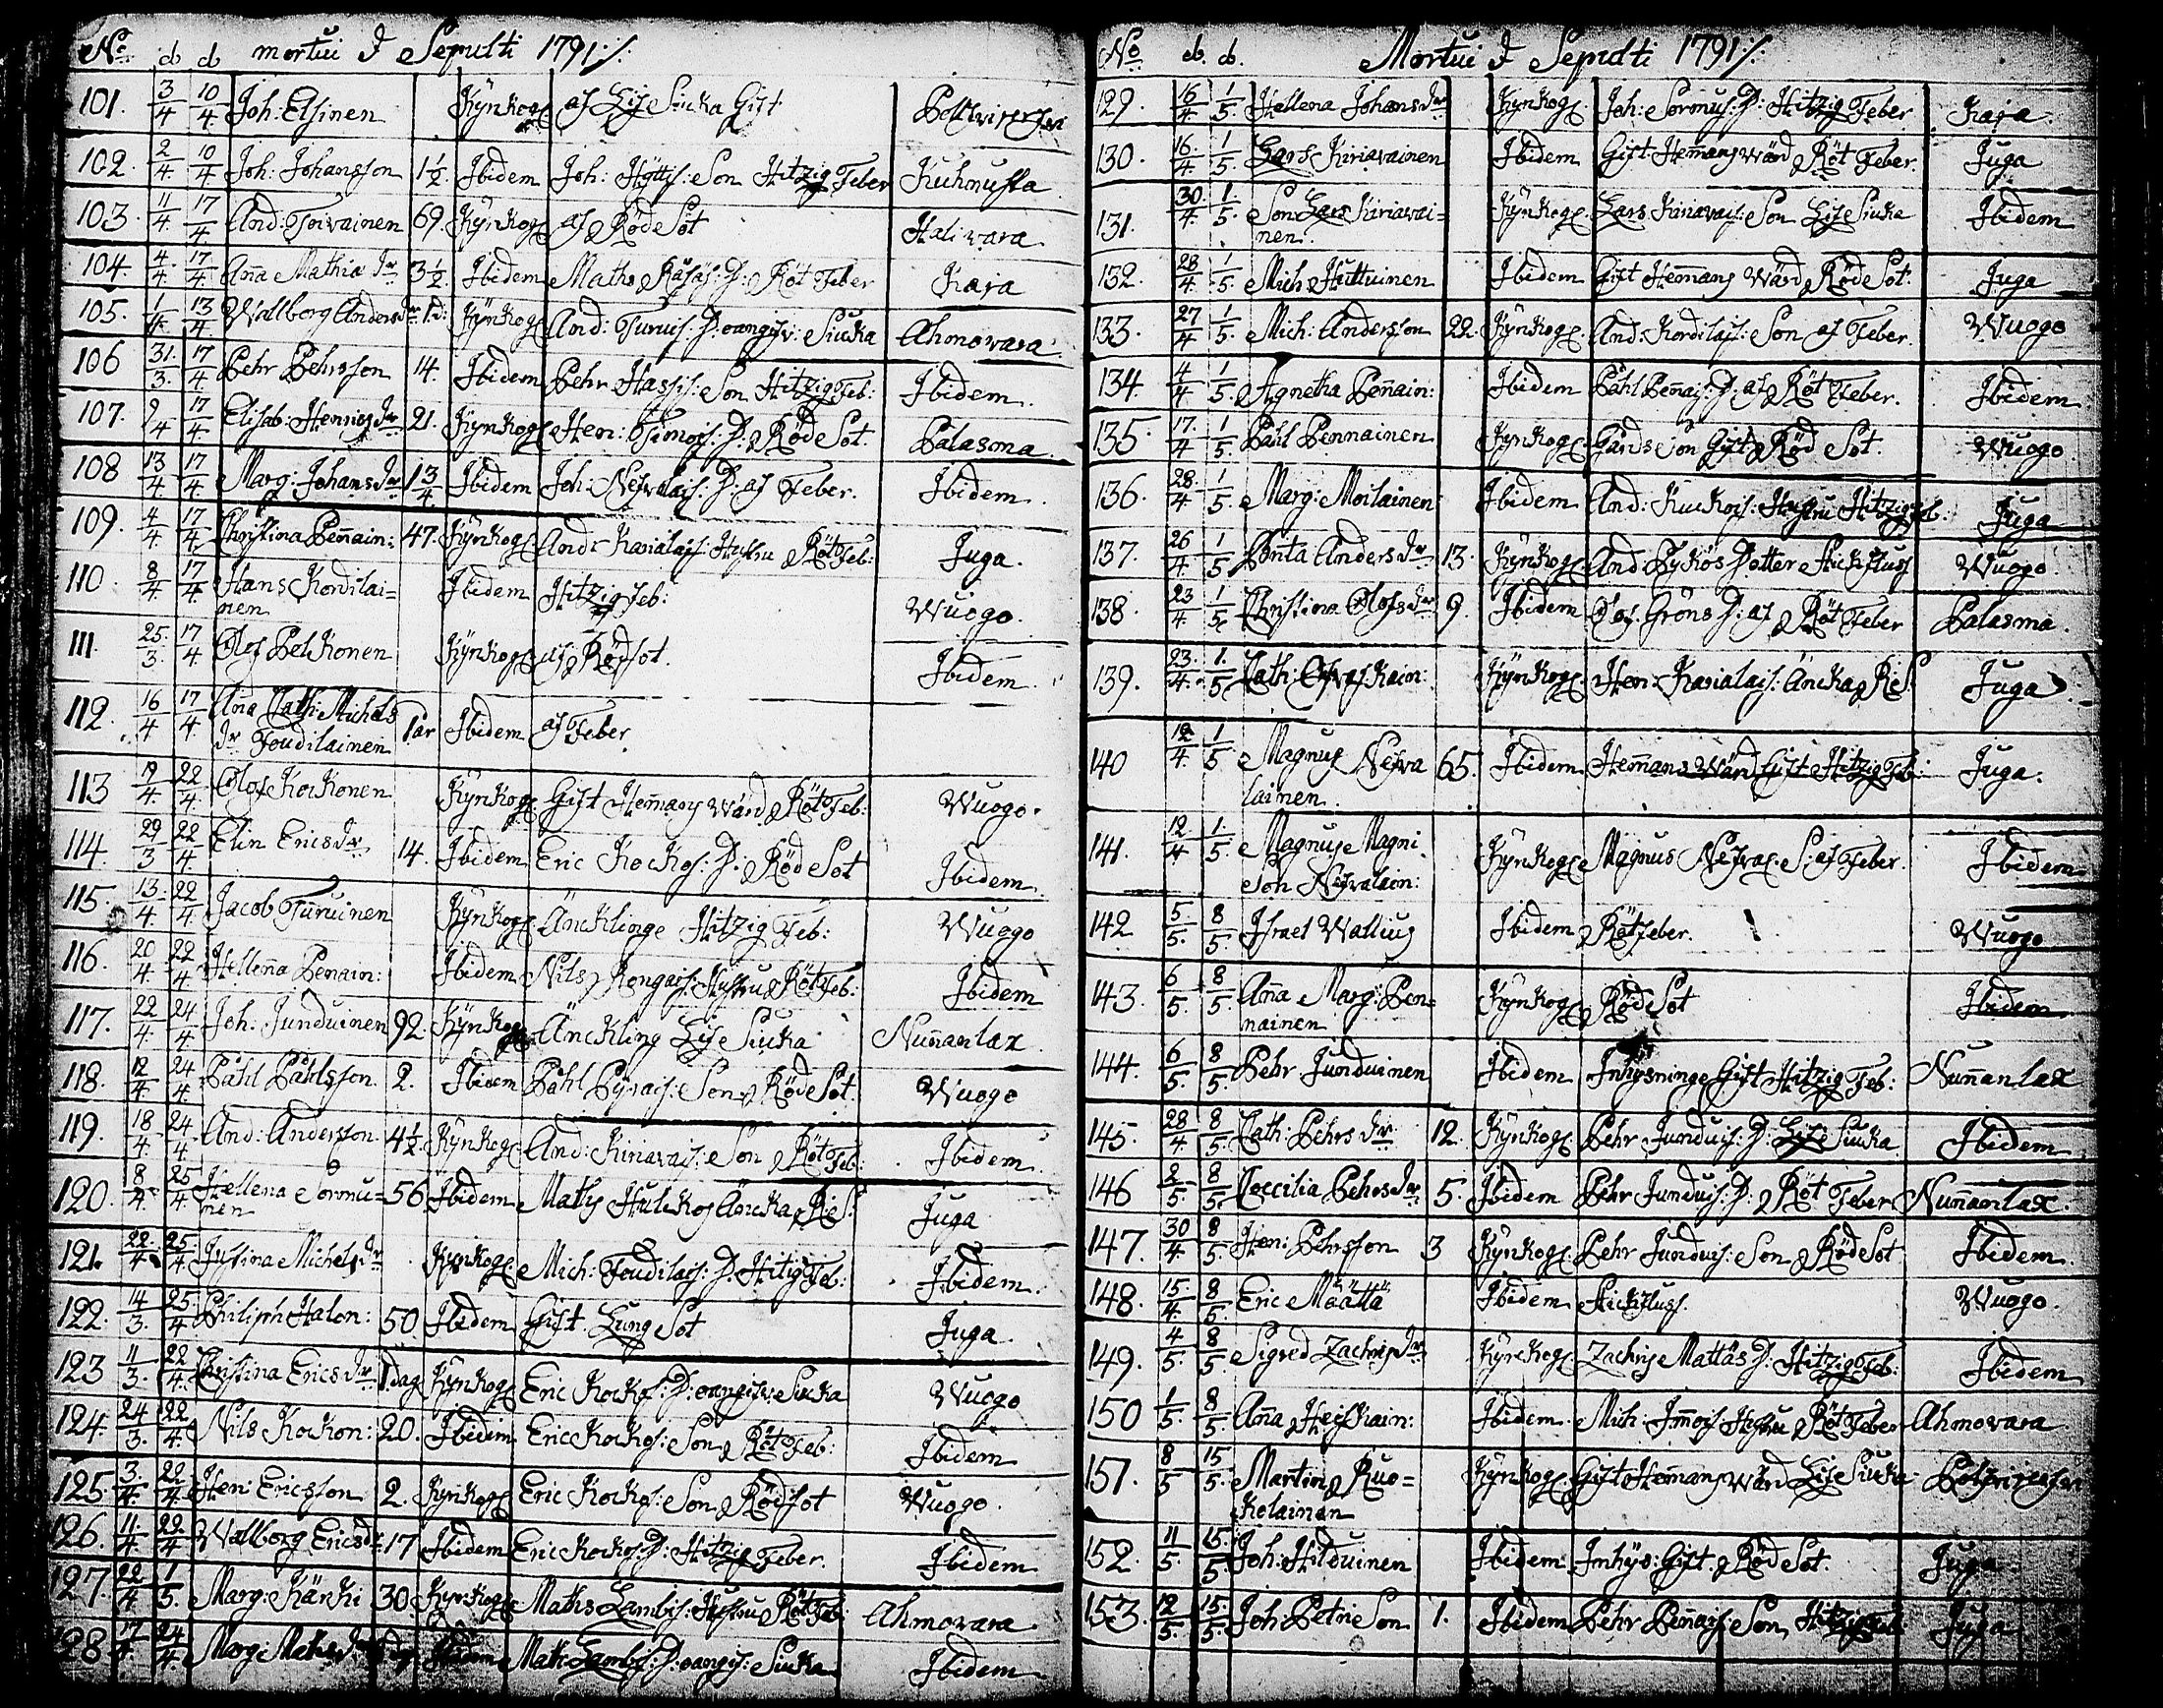 No d d mortui & Sepulti 1791:/.
101. 3/4 10/4 Joh. Elsinen Kyrkog af Lijf Siuka Gift
102. 2/4 10/4 Joh: Johansson 1 1/2. Ibidem Joh: Hÿtti: Son Hitzig Feber Kuhnusta
103. 11/4 17/4 And: Toivainen 69. Kyrkog af Röd Sot Halivara
104. 4/4 17/4 Anna Mathiæ dr 3 1/2. Ibidem Maths Räsäs: D: Röt Feber Kaja
105. 1/4 13/4 Wallborg Anders dr 1 d: Kyrkog And: Turuis: D: oangifv: Siuka Ahmovara
106 31/3 17/4 Pehr Pehrsson 14. Ibidem Pehr Hassis: Son Hitzig Feb: Ibidem
107. 9/4 17/4 Elisab: Henrics dr 21. Kyrkog Hen: Timois: D: Röde Sot. Palasma
108 13/4 17/4 Marg: Johans dr 1 3/4. Ibidem Joh: Nefvalais: D: af Feber. Ibidem.
109. 4/4 17/4 Christina Pennain: 47. Kyrkog And: Karialais: Hustru Röt Feb: Juga.
110. 8/4 17/4 Hans Kordilai=
nen Ibidem Hitzig feb: Wuogo.
111. 25/3 17/4 Olof Pelkonen Kyrkog af Rödsot. Ibidem.
112. 16/4 17/4 Anna Cath: Michels
dr Toudilainen 1 år Ibidem af Feber
113 19/4 22/4 Olof Kockonen Kyrkog Gift Hemans Wärd Röt Feb: Wuogo.
114. 29/3 22/4 Elin Erics dr 14. Ibidem Eric Kockos: D: Röd Sot Ibidem
115. 13/4 22/4 Jacob Turuinen Kyrkog Äncklinge Hitzig Feb: Wuogo
116. 20/4 22/4 Hellena Penain: Ibidem Nils Rongais: Hustru Röt Feb: Ibidem
117. 22/4 24/4 Joh: Junduinen 92. Kyrkog Änckling Lijf Siuka Nunnanlax
118. 12/4 24/4 Påhl Påhlsson 2. Ibidem Påhl Pÿrais: Son Röde Sot. Wuogo
119. 18/4 24/4 And: Andersson 4 1/2. Kyrkog And: Kiriavais: Son Röt Feb: Ibidem
120. 8/4 25/4 Hellena Sormu=
nen 56. Ibidem Maths Hulckos Äncka Juga
121. 22/4 25/4 Justina Michels dr Kyrkog Mich: Toudilais: D: Hitzig Feb: Ibidem
122. 14/3 25/4 Philiph Halon: 50. Ibidem Gift. Lung Sot Juga.
123 11/3 22/4 Christina Erics dr 1 dag Kyrkog Eric Kockos: D: oangifv: Siuka Wuogo
124. 24/3 22/4 Nils Kockon: 20. Ibidem Eric Kockos: Son Röt Feb: Ibidem
125. 3/4 22/4 Hen: Ericsson 2. Kyrkog Eric Kockos: Son Rödsot Wuogo.
126. 11/4 22/4 Wallborg Erics dr 17 Ibidem Eric Kockos: D: Hitzig Feber. Ibidem
127. 22/4 1/5 Marg: Kärki 30 Kyrkog Maths Lambis: Hustru Röt Feb: Ahmovara
128 17/4 24/4 Marg: Maths dr Ibidem Math: Lambis: D: oangif: Siuka Ibidem
No d. d. Mortui & Sepulti 1791:/.
129. 16/4 1/5 Hellena Johans dr Kyrkog Joh: Sormus: D: Hitzig Feber Kaja
130. 16/4 1/5 Lars Kiriavainen Ibidem Gift Hemans wärd Röt Feber. Juga
131. 30/4 1/5 Son Lars Kiriavai=
nen. Kyrkog Lars Kiriavais: Son Lijf Siuka Ibidem
132. 28/4 1/5 Mich Huttuinen Ibidem Gift Hemans Wärd Röde Sot. Juga
133. 27/4 1/5 Mich: Andersson 22. Kyrkog And: Kordilais: Son af Feber. Wuogo
134. 4/4 1/5 Agnetha Penain: Ibidem Påhl Penais: D: af Röt Feber. Ibidem
135. 17/4 1/5 Påhl Pennainen Kyrkog Gift Röd Sot. Wuogo
136. 28/4 1/5 Marg: Moilainen Ibidem And: Kuckois: Hustru Hitzig feb: Juga
137. 26/4 1/5 Anders dr 13. Kyrkog And Pÿkös Dotter Stickfluss Wuogo
138. 23/4 1/5 Christina Olofs dr 9. Ibidem Olof Gröns D: af Röt Feber Palasma.
139. 23/4 1/5 Cath: Kyrkog Hen: Karialais: Äncka Juga
140 12/4 1/5 Magnus Nefva
lainen. 65. Ibidem Hemans Wärd Gift Hitzig Feb: Juga.
141. 12/4 1/5 Magnus Magni
Son Nefvalain: Kyrkog Magnus Nefvas: S: af Feber. Ibidem
142 5/5 8/5 Israel Wallius Ibidem Rötfeber. Wuogo
143. 6/5 8/5 Anna Marg: Pen=
nainen Kyrkog Röd Sot Ibidem
144. 6/5 8/5 Pehr Junduinen Ibidem Inhysninge Gift Hitzig Feb: Nunnanlax
145. 28/4 8/5 Cath: Pehrs dr 12. Kyrkog Pehr Junduis: D: Lijf Siuka Ibidem
146 2/5 8/5 Coecilia Pehrs dr 5. Ibidem Pehr Junduis: D: Röt Feber Nunnanlax.
147. 30/4 8/5 Hen: Pehrsson 3 Kyrkog Pehr Junduis: Son Röde Sot Ibidem.
148. 15/4 8/5 Eric Määttä Ibidem Stickfluss. Wuogo.
149. 4/5 8/5 Sigred Zachris dr Kyrkog Zachris Mattäs D: Hitzig Feb: Ibidem
150 1/5 8/5 Anna Heiskain: Ibidem Mich: Immois: Hustru Röt Feber Ahmovara
151. 8/5 15/5 Martin Ruo=
kolainen Kyrkog Gift Hemans Wärd Lijf Siuka
152. 11/5 15/5 Joh: Hilduinen Ibidem Inhÿs: Gift Röd Sot. Juga.
153. 12/5 15/5 Joh: Petri Son 1. Ibidem Pehr Pennais: Son Hitzig feb: Juga